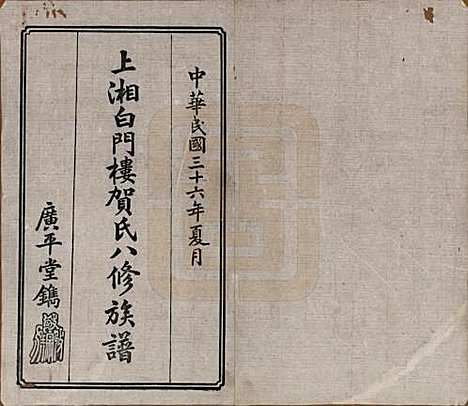 中華民國三十六年夏月
上湘白門樓賀氏八修族譜
廣平堂鐫